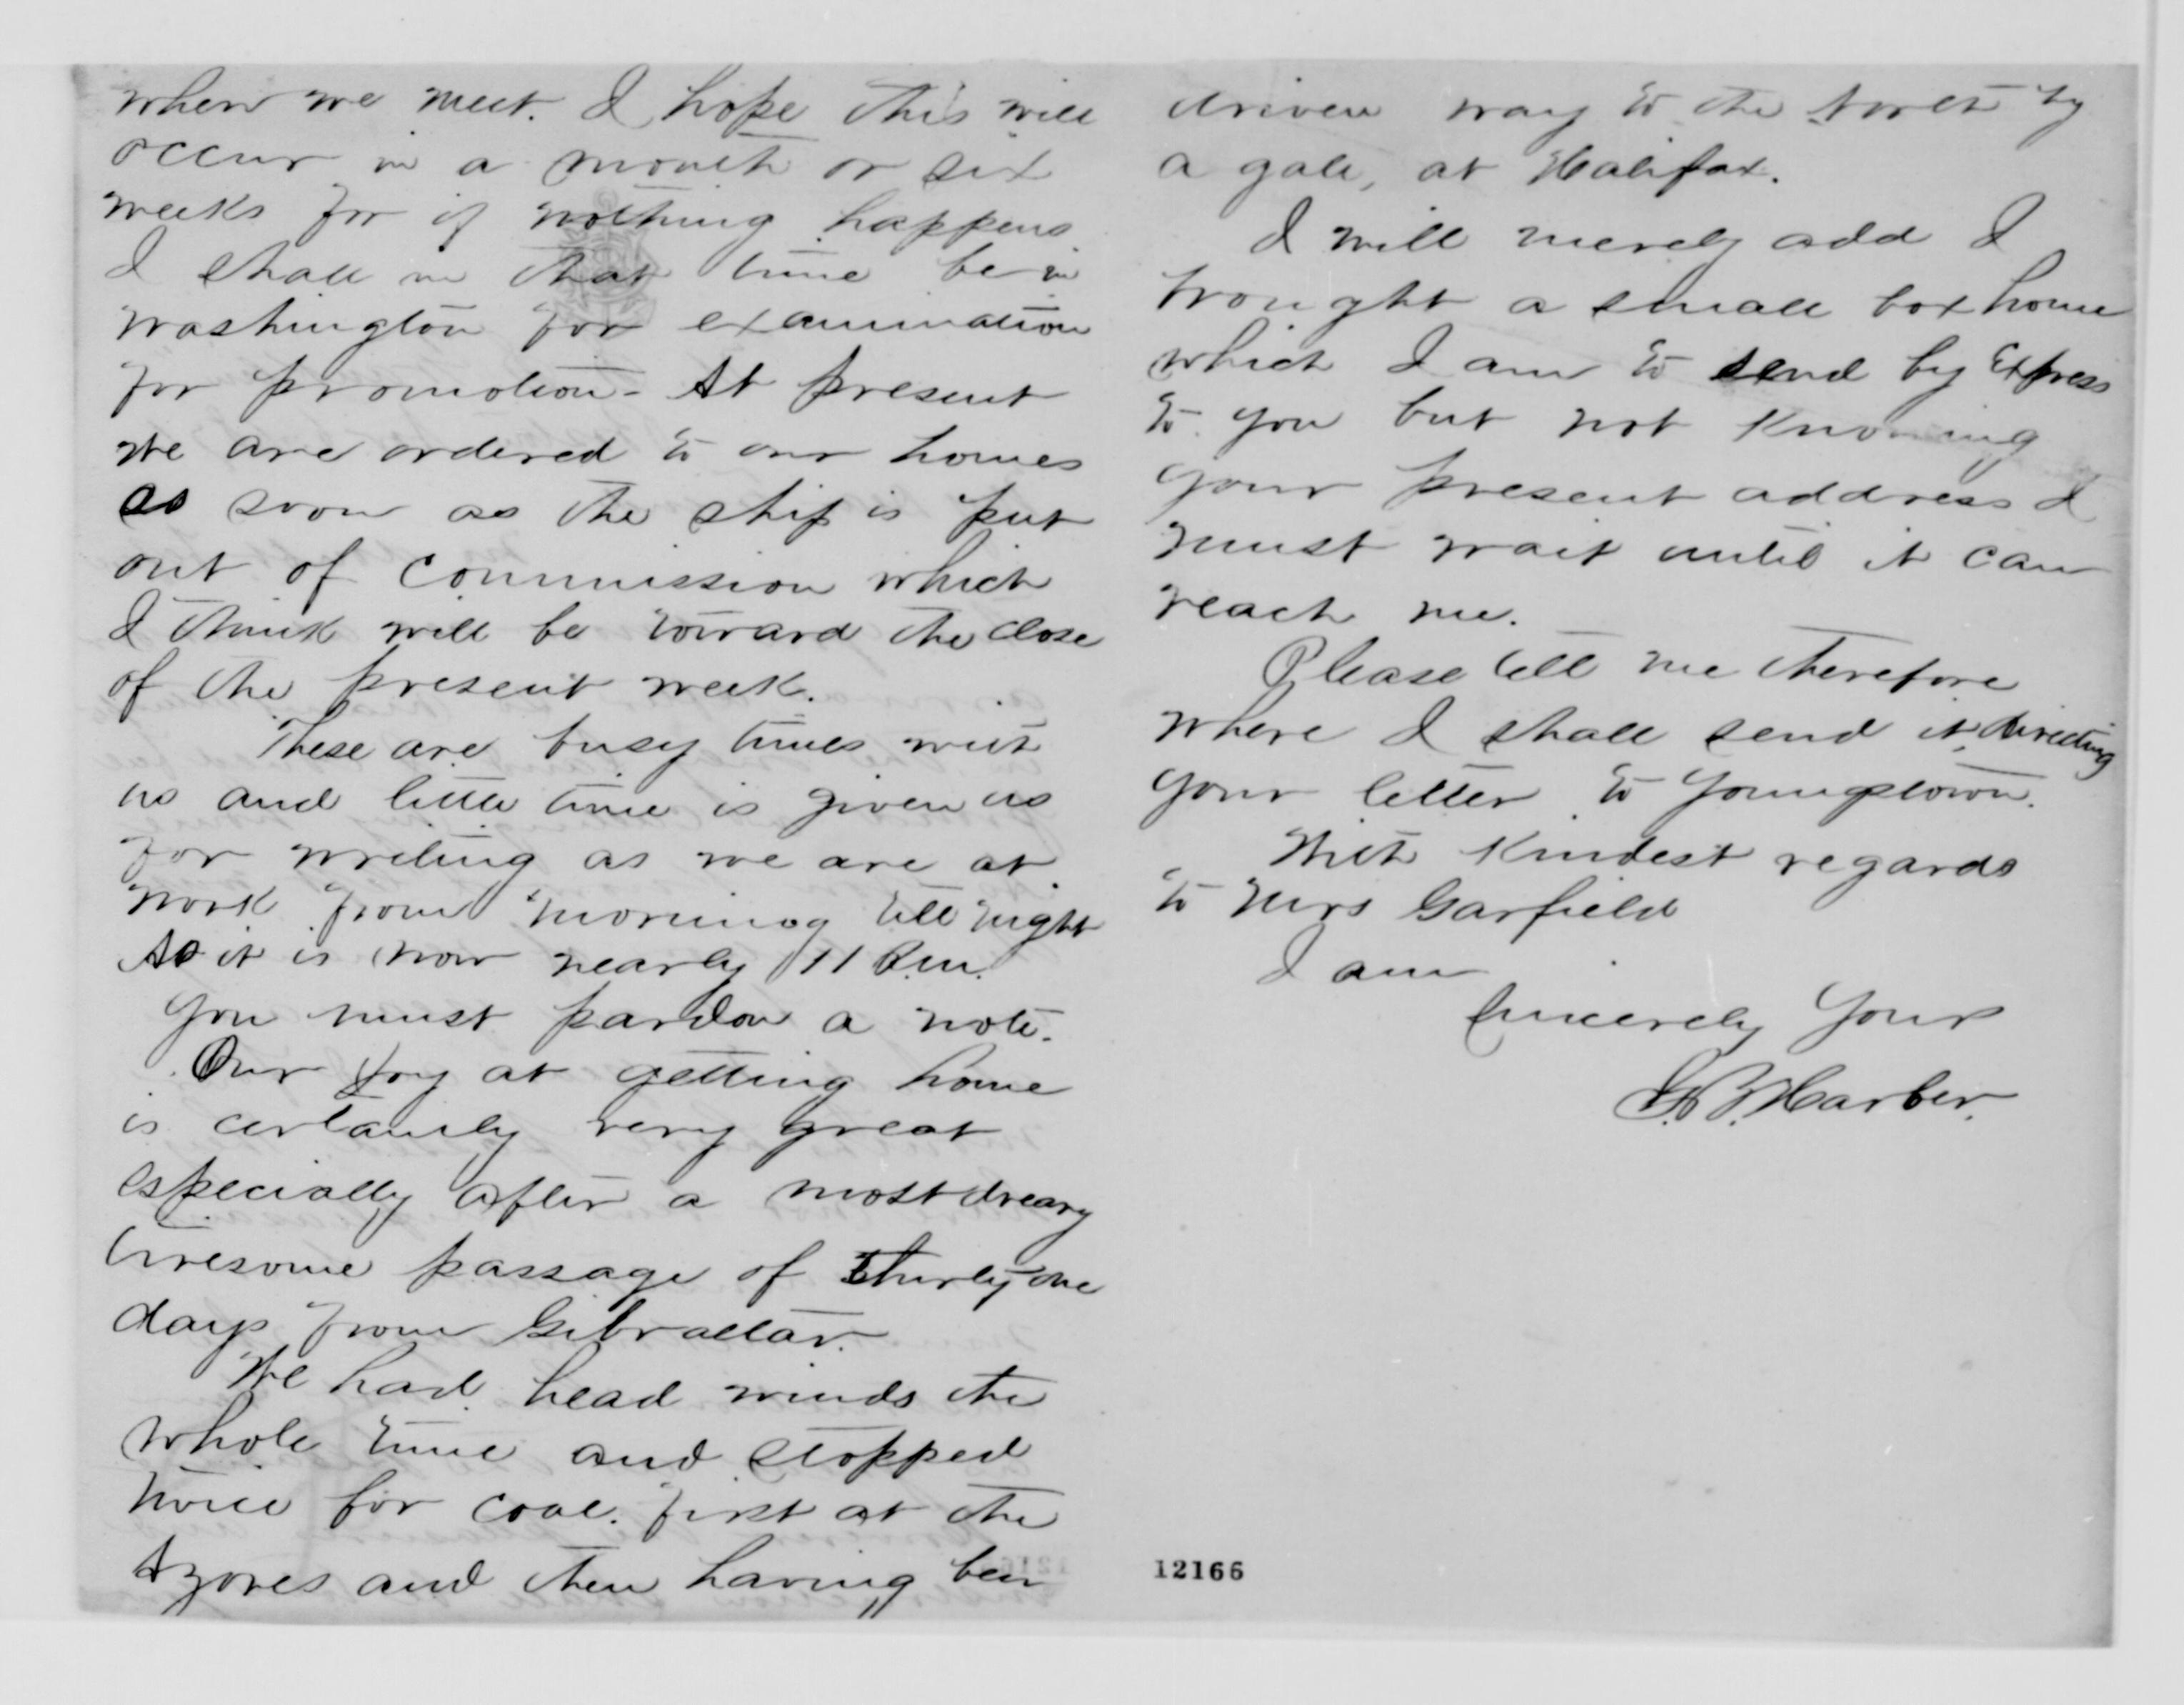 when we meet. I hope this will
occur in a month or six
weeks for if nothing happens
I shall in that time be in
Washington for examination
for promotion - At present
we are ordered to our homes
as soon as the ship is put
out of commission which
I think will be toward the close
of the present week.
These are busy times with
us and little time is given us
for writing as we are at
work from morning till night
As it is now nearly 11 P.m.
you must pardon a note.
Our joy at getting home
is certainly very great
especially after a most dreary
tiresome passage of thirty one
days from Gibraltar.
We had head winds the
whole time and stopped
twice for coal. first at the
Azores and then having been
driven way to the North by
a gale, at Halifax.
I will merely add I
brought a small box home
which I am to send by Express
to you but not knowing
your present address I
must wait until it can
reach me.
Please tell me therefore
where I shall send it, directing
your letter to Youngstown.
With kindest regards
to Mrs Garfield
I am
Sincerely Yours
G. B. Harber.
12166